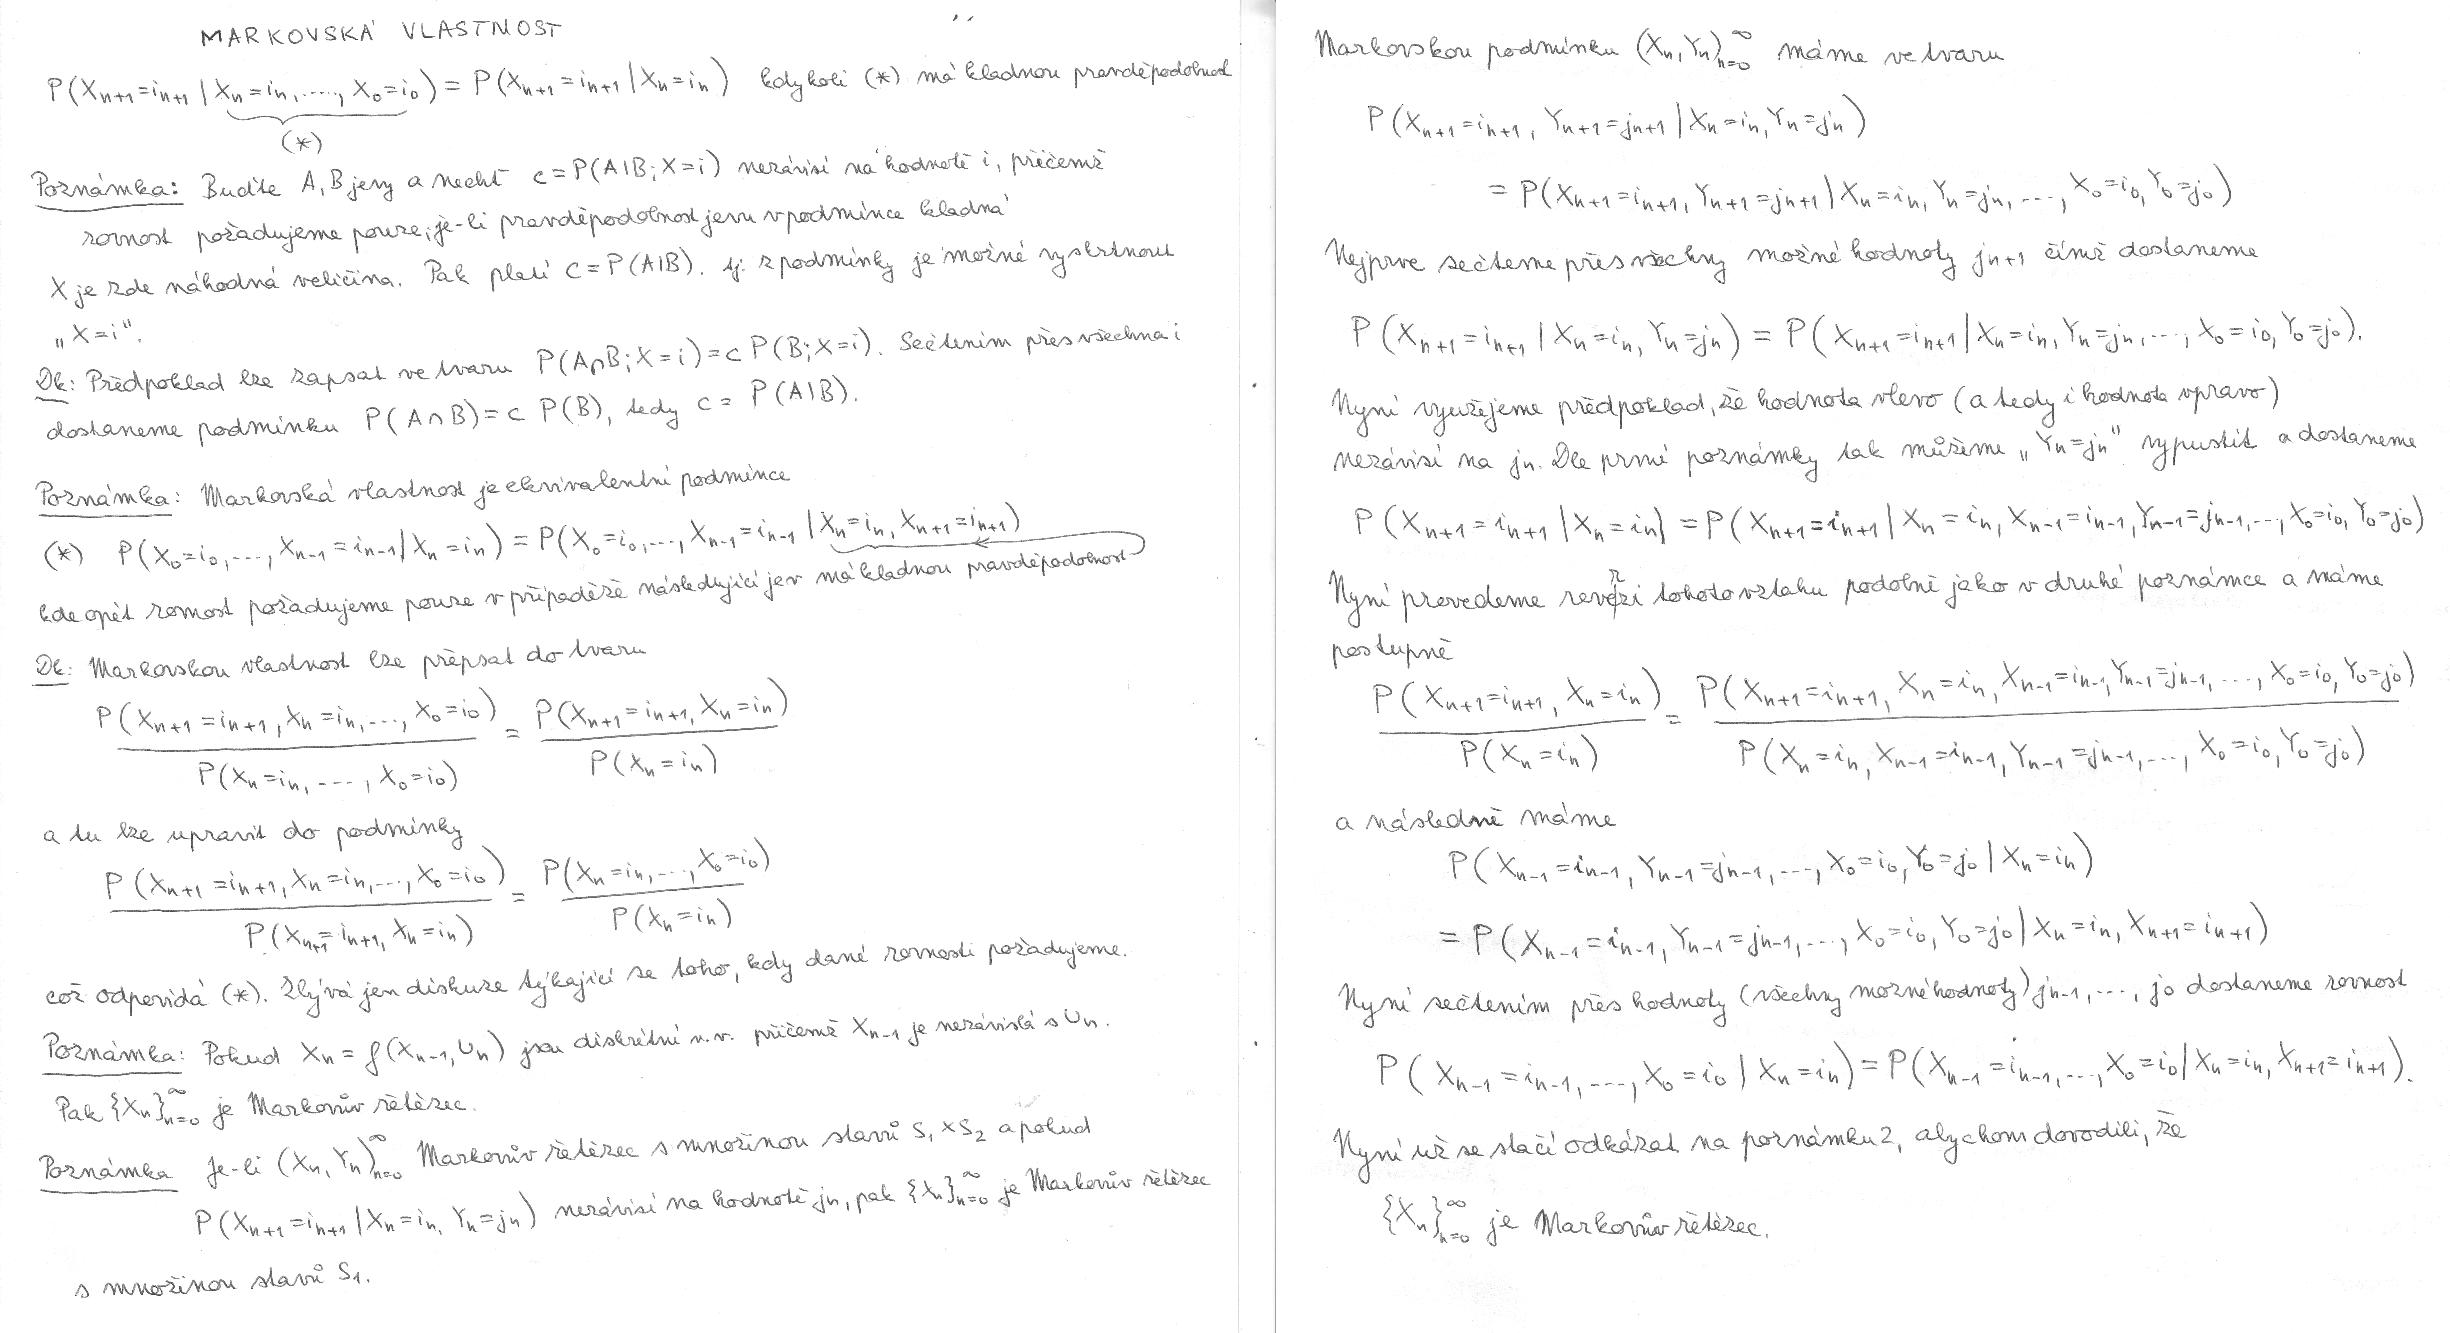 MARKOVSKÁ VLASTNOST
P(Xₙ₊₁=iₙ₊₁ | Xₙ=iₙ, ...., X₀=i₀) = P(Xₙ₊₁=iₙ₊₁ | Xₙ=iₙ) kdykoli (*) má kladnou pravděpodobnost
(*)
Poznámka: Buďte A, B jevy a nechť c = P(A|B; X=i) nezávisí na hodnotě i, přičemž
rovnost požadujeme pouze, je-li pravděpodobnost jevu v podmínce kladná
X je zde náhodná veličina. Pak platí c = P(A|B). tj. z podmínky je možné vyškrtnout
„X=i“.
Dk: Předpoklad lze zapsat ve tvaru P(A∩B; X=i) = c P(B; X=i). Sečtením přes všechna i
dostaneme podmínku P(A∩B) = c P(B), tedy c = P(A|B).
Poznámka: Markovská vlastnost je ekvivalentní podmínce
(*) P(X₀=i₀, ..., Xₙ₋₁=iₙ₋₁ | Xₙ=iₙ) = P(X₀=i₀, ..., Xₙ₋₁=iₙ₋₁ | Xₙ=iₙ, Xₙ₊₁=iₙ₊₁)
kde opět rovnost požadujeme pouze v případě že následující jev má kladnou pravděpodobnost
Dk: Markovskou vlastnost lze přepsat do tvaru
P(Xₙ₊₁=iₙ₊₁, Xₙ=iₙ, ..., X₀=i₀) / P(Xₙ=iₙ, ..., X₀=i₀) = P(Xₙ₊₁=iₙ₊₁, Xₙ=iₙ) / P(Xₙ=iₙ)
a tu lze upravit do podmínky
P(Xₙ₊₁=iₙ₊₁, Xₙ=iₙ, ..., X₀=i₀) / P(Xₙ₊₁=iₙ₊₁, Xₙ=iₙ) = P(Xₙ=iₙ, ..., X₀=i₀) / P(Xₙ=iₙ)
což odpovídá (*). Zbývá jen diskuze týkající se toho, kdy dané rovnosti požadujeme.
Poznámka: Pokud Xₙ = f(Xₙ₋₁, Uₙ) jsou diskrétní n.v. přičemž Xₙ₋₁ je nezávislá s Uₙ.
Pak {Xₙ}ₙ₌₀^∞ je Markovův řetězec.
Poznámka Je-li (Xₙ, Yₙ)ₙ₌₀^∞ Markovův řetězec s množinou stavů S₁×S₂ a pokud
P(Xₙ₊₁=iₙ₊₁ | Xₙ=iₙ, Yₙ=jₙ) nezávisí na hodnotě jₙ, pak {Xₙ}ₙ₌₀^∞ je Markovův řetězec
s množinou stavů S₁.
Markovskou podmínku (Xₙ, Yₙ)ₙ₌₀^∞ máme ve tvaru
P(Xₙ₊₁=iₙ₊₁, Yₙ₊₁=jₙ₊₁ | Xₙ=iₙ, Yₙ=jₙ)
= P(Xₙ₊₁=iₙ₊₁, Yₙ₊₁=jₙ₊₁ | Xₙ=iₙ, Yₙ=jₙ, ..., X₀=i₀, Y₀=j₀)
Nejprve sečteme přes všechny možné hodnoty jₙ₊₁ čímž dostaneme
P(Xₙ₊₁=iₙ₊₁ | Xₙ=iₙ, Yₙ=jₙ) = P(Xₙ₊₁=iₙ₊₁ | Xₙ=iₙ, Yₙ=jₙ, ..., X₀=i₀, Y₀=j₀).
Nyní využejeme předpoklad, že hodnota vlevo (a tedy i hodnota vpravo)
nezávisí na jₙ. Dle první poznámky tak můžeme „Yₙ=jₙ“ vypustit a dostaneme
P(Xₙ₊₁=iₙ₊₁ | Xₙ=iₙ) = P(Xₙ₊₁=iₙ₊₁ | Xₙ=iₙ, Xₙ₋₁=iₙ₋₁, Yₙ₋₁=jₙ₋₁, ..., X₀=i₀, Y₀=j₀)
Nyní provedeme reverzi tohoto vztahu podobně jako v druhé poznámce a máme
postupně
P(Xₙ₊₁=iₙ₊₁, Xₙ=iₙ) / P(Xₙ=iₙ) = P(Xₙ₊₁=iₙ₊₁, Xₙ=iₙ, Xₙ₋₁=iₙ₋₁, Yₙ₋₁=jₙ₋₁, ..., X₀=i₀, Y₀=j₀) / P(Xₙ=iₙ, Xₙ₋₁=iₙ₋₁, Yₙ₋₁=jₙ₋₁, ..., X₀=i₀, Y₀=j₀)
a následně máme
P(Xₙ₋₁=iₙ₋₁, Yₙ₋₁=jₙ₋₁, ..., X₀=i₀, Y₀=j₀ | Xₙ=iₙ)
= P(Xₙ₋₁=iₙ₋₁, Yₙ₋₁=jₙ₋₁, ..., X₀=i₀, Y₀=j₀ | Xₙ=iₙ, Xₙ₊₁=iₙ₊₁)
Nyní sečtením přes hodnoty (všechny možné hodnoty) jₙ₋₁, ..., j₀ dostaneme rovnost
P(Xₙ₋₁=iₙ₋₁, ..., X₀=i₀ | Xₙ=iₙ) = P(Xₙ₋₁=iₙ₋₁, ..., X₀=i₀ | Xₙ=iₙ, Xₙ₊₁=iₙ₊₁).
Nyní už se stačí odkázat na poznámku 2, abychom dovodili, že
{Xₙ}ₙ₌₀^∞ je Markovův řetězec.